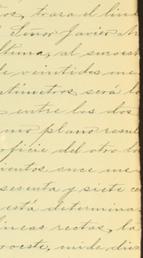 os, trara el line
Señor Javier Ar
ltima, al suroest
e veintidos me
ntímetros, será la
entre los dos
mo plano resul
oficie del otro lo
ientos once me
sesenta y siete ce
está determina
lineas rectas, la
roeste, mide diez